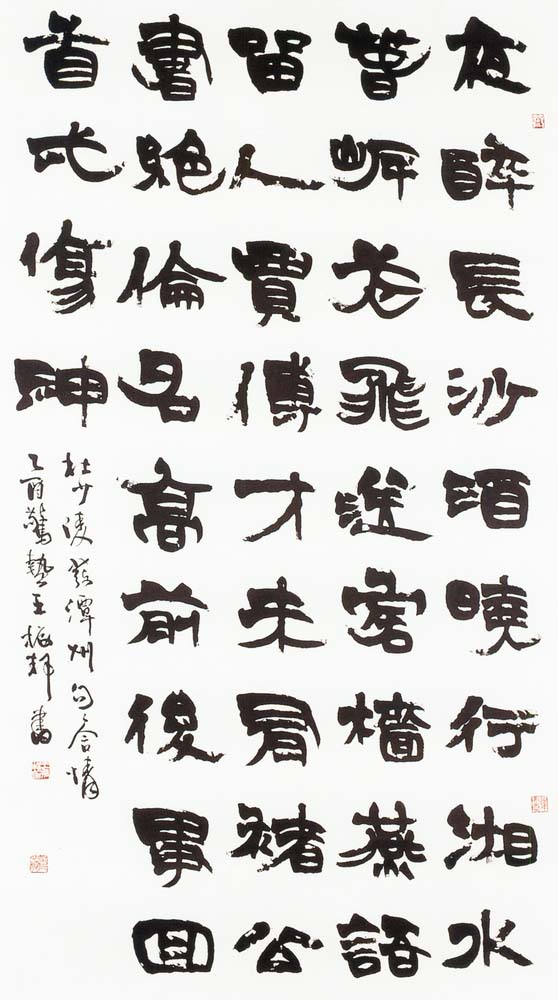 夜醉長沙酒曉行湘水
春岸花飛送客檣燕語
留人賈傅才未有褚公
書絕倫名高前後事回
首弌傷神
杜少陵發潭州句含情
乙酉驚蟄王振書